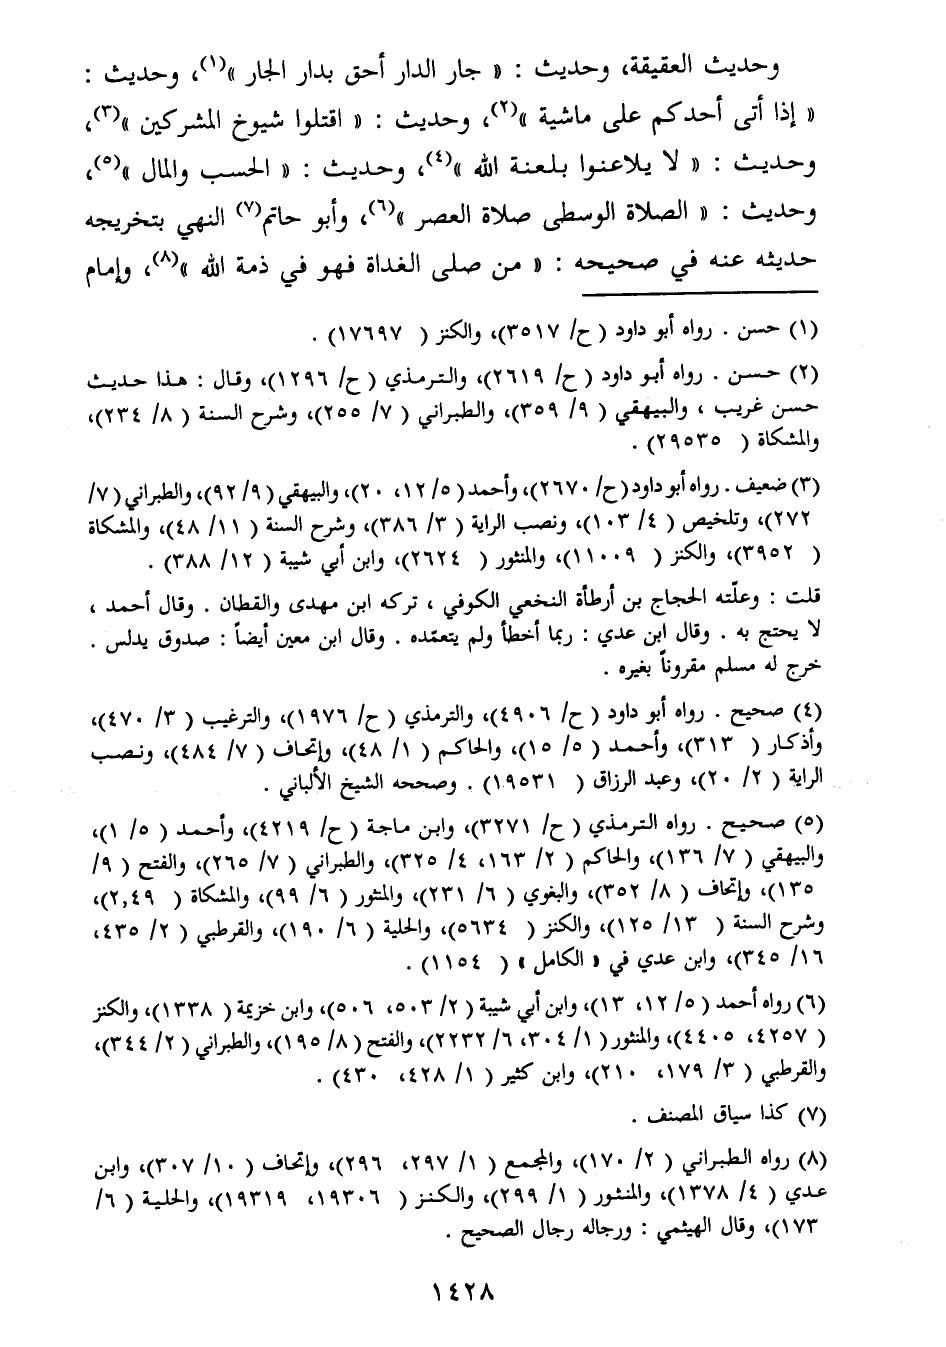 وحديث العقيقة، وحديث : « جار الدار أحق بدار الجار »(١)، وحديث :
« إذا أتى أحدكم على ماشية »(٢)، وحديث : « اقتلوا شيوخ المشركين »(٣)،
وحديث : « لا يلاعنوا بلعنة الله »(٤)، وحديث : « الحسب والمال »(٥)،
وحديث : « الصلاة الوسطى صلاة العصر »(٦)، وأبو حاتم(٧) النهي بتخريجه
حديثه عنه في صحيحه : « من صلى الغداة فهو في ذمة الله »(٨)، وإمام
(١) حسن . رواه أبو داود ( ح/ ٣٥١٧)، والكنز ( ١٧٦٩٧) .
(٢) حسن . رواه أبو داود ( ح/ ٢٦١٩)، والترمذي ( ح/ ١٢٩٦)، وقال : هذا حديث
حسن غريب ، والبيهقي ( ٩/ ٣٥٩)، والطبراني ( ٧/ ٢٥٥)، وشرح السنة ( ٨/ ٢٣٤)،
والمشكاة ( ٢٩٥٣٥) .
(٣) ضعيف . رواه أبو داود (ح/ ٢٦٧٠)، وأحمد (٥/ ١٢، ٢٠)، والبيهقي (٩/ ٩٢)، والطبراني (٧/
٢٧٢)، وتلخيص ( ٤/ ١٠٣)، ونصب الراية ( ٣/ ٣٨٦)، وشرح السنة ( ١١/ ٤٨)، والمشكاة
( ٣٩٥٢)، والكنز ( ١١٠٠٩)، والمنثور ( ٢٦٢٤)، وابن أبي شيبة ( ١٢/ ٣٨٨) .
قلت : وعلّته الحجاج بن أرطأة النخعي الكوفي ، تركه ابن مهدى والقطان . وقال أحمد ،
لا يحتج به . وقال ابن عدي : ربما أخطأ ولم يتعمّده . وقال ابن معين أيضاً : صدوق يدلس .
خرج له مسلم مقروناً بغيره .
(٤) صحيح . رواه أبو داود ( ح/ ٤٩٠٦)، والترمذي ( ح/ ١٩٧٦)، والترغيب ( ٣/ ٤٧٠)،
وأذكار ( ٣١٣)، وأحمد ( ٥/ ١٥)، والحاكم ( ١/ ٤٨)، وإتحاف ( ٧/ ٤٨٤)، ونصب
الراية ( ٢/ ٢٠)، وعبد الرزاق ( ١٩٥٣١) . وصححه الشيخ الألباني .
(٥) صحيح . رواه الترمذي ( ح/ ٣٢٧١)، وابن ماجة ( ح/ ٤٢١٩)، وأحمد ( ٥/ ١)،
والبيهقي ( ٧/ ١٣٦)، والحاكم ( ٢/ ١٦٣، ٤/ ٣٢٥)، والطبراني ( ٧/ ٢٦٥)، والفتح ( ٩/
١٣٥)، وإتحاف ( ٨/ ٣٥٢)، والبغوي ( ٦/ ٢٣١)، والمنثور ( ٦/ ٩٩)، والمشكاة ( ٢,٤٩)،
وشرح السنة ( ١٣/ ١٢٥)، والكنز ( ٥٦٣٤)، والحلية ( ٦/ ١٩٠)، والقرطبي ( ٢/ ٤٣٥،
١٦/ ٣٤٥)، وابن عدي في « الكامل » ( ١١٥٤) .
(٦) رواه أحمد ( ٥/ ١٢، ١٣)، وابن أبي شيبة ( ٢/ ٥٠٣، ٥٠٦)، وابن خزيمة ( ١٣٣٨)، والكنز
( ٤٢٥٧، ٤٤٠٥)، والمنثور ( ١/ ٣٠٤، ٦/ ٢٢٣٢)، والفتح ( ٨/ ١٩٥)، والطبراني ( ٢/ ٣٤٤)،
والقرطبي ( ٣/ ١٧٩، ٢١٠)، وابن كثير ( ١/ ٤٢٨، ٤٣٠) .
(٧) كذا سياق المصنف .
(٨) رواه الطبراني ( ٢/ ١٧٠)، والمجمع ( ١/ ٢٩٧، ٢٩٦)، وإتحاف ( ١٠/ ٣٠٧)، وابن
عدي ( ٤/ ١٣٧٨)، والمنثور ( ١/ ٢٩٩)، والكنز ( ١٩٣٠٦، ١٩٣١٩)، والحلية ( ٦/
١٧٣)، وقال الهيثمي : ورجاله رجال الصحيح .
١٤٢٨